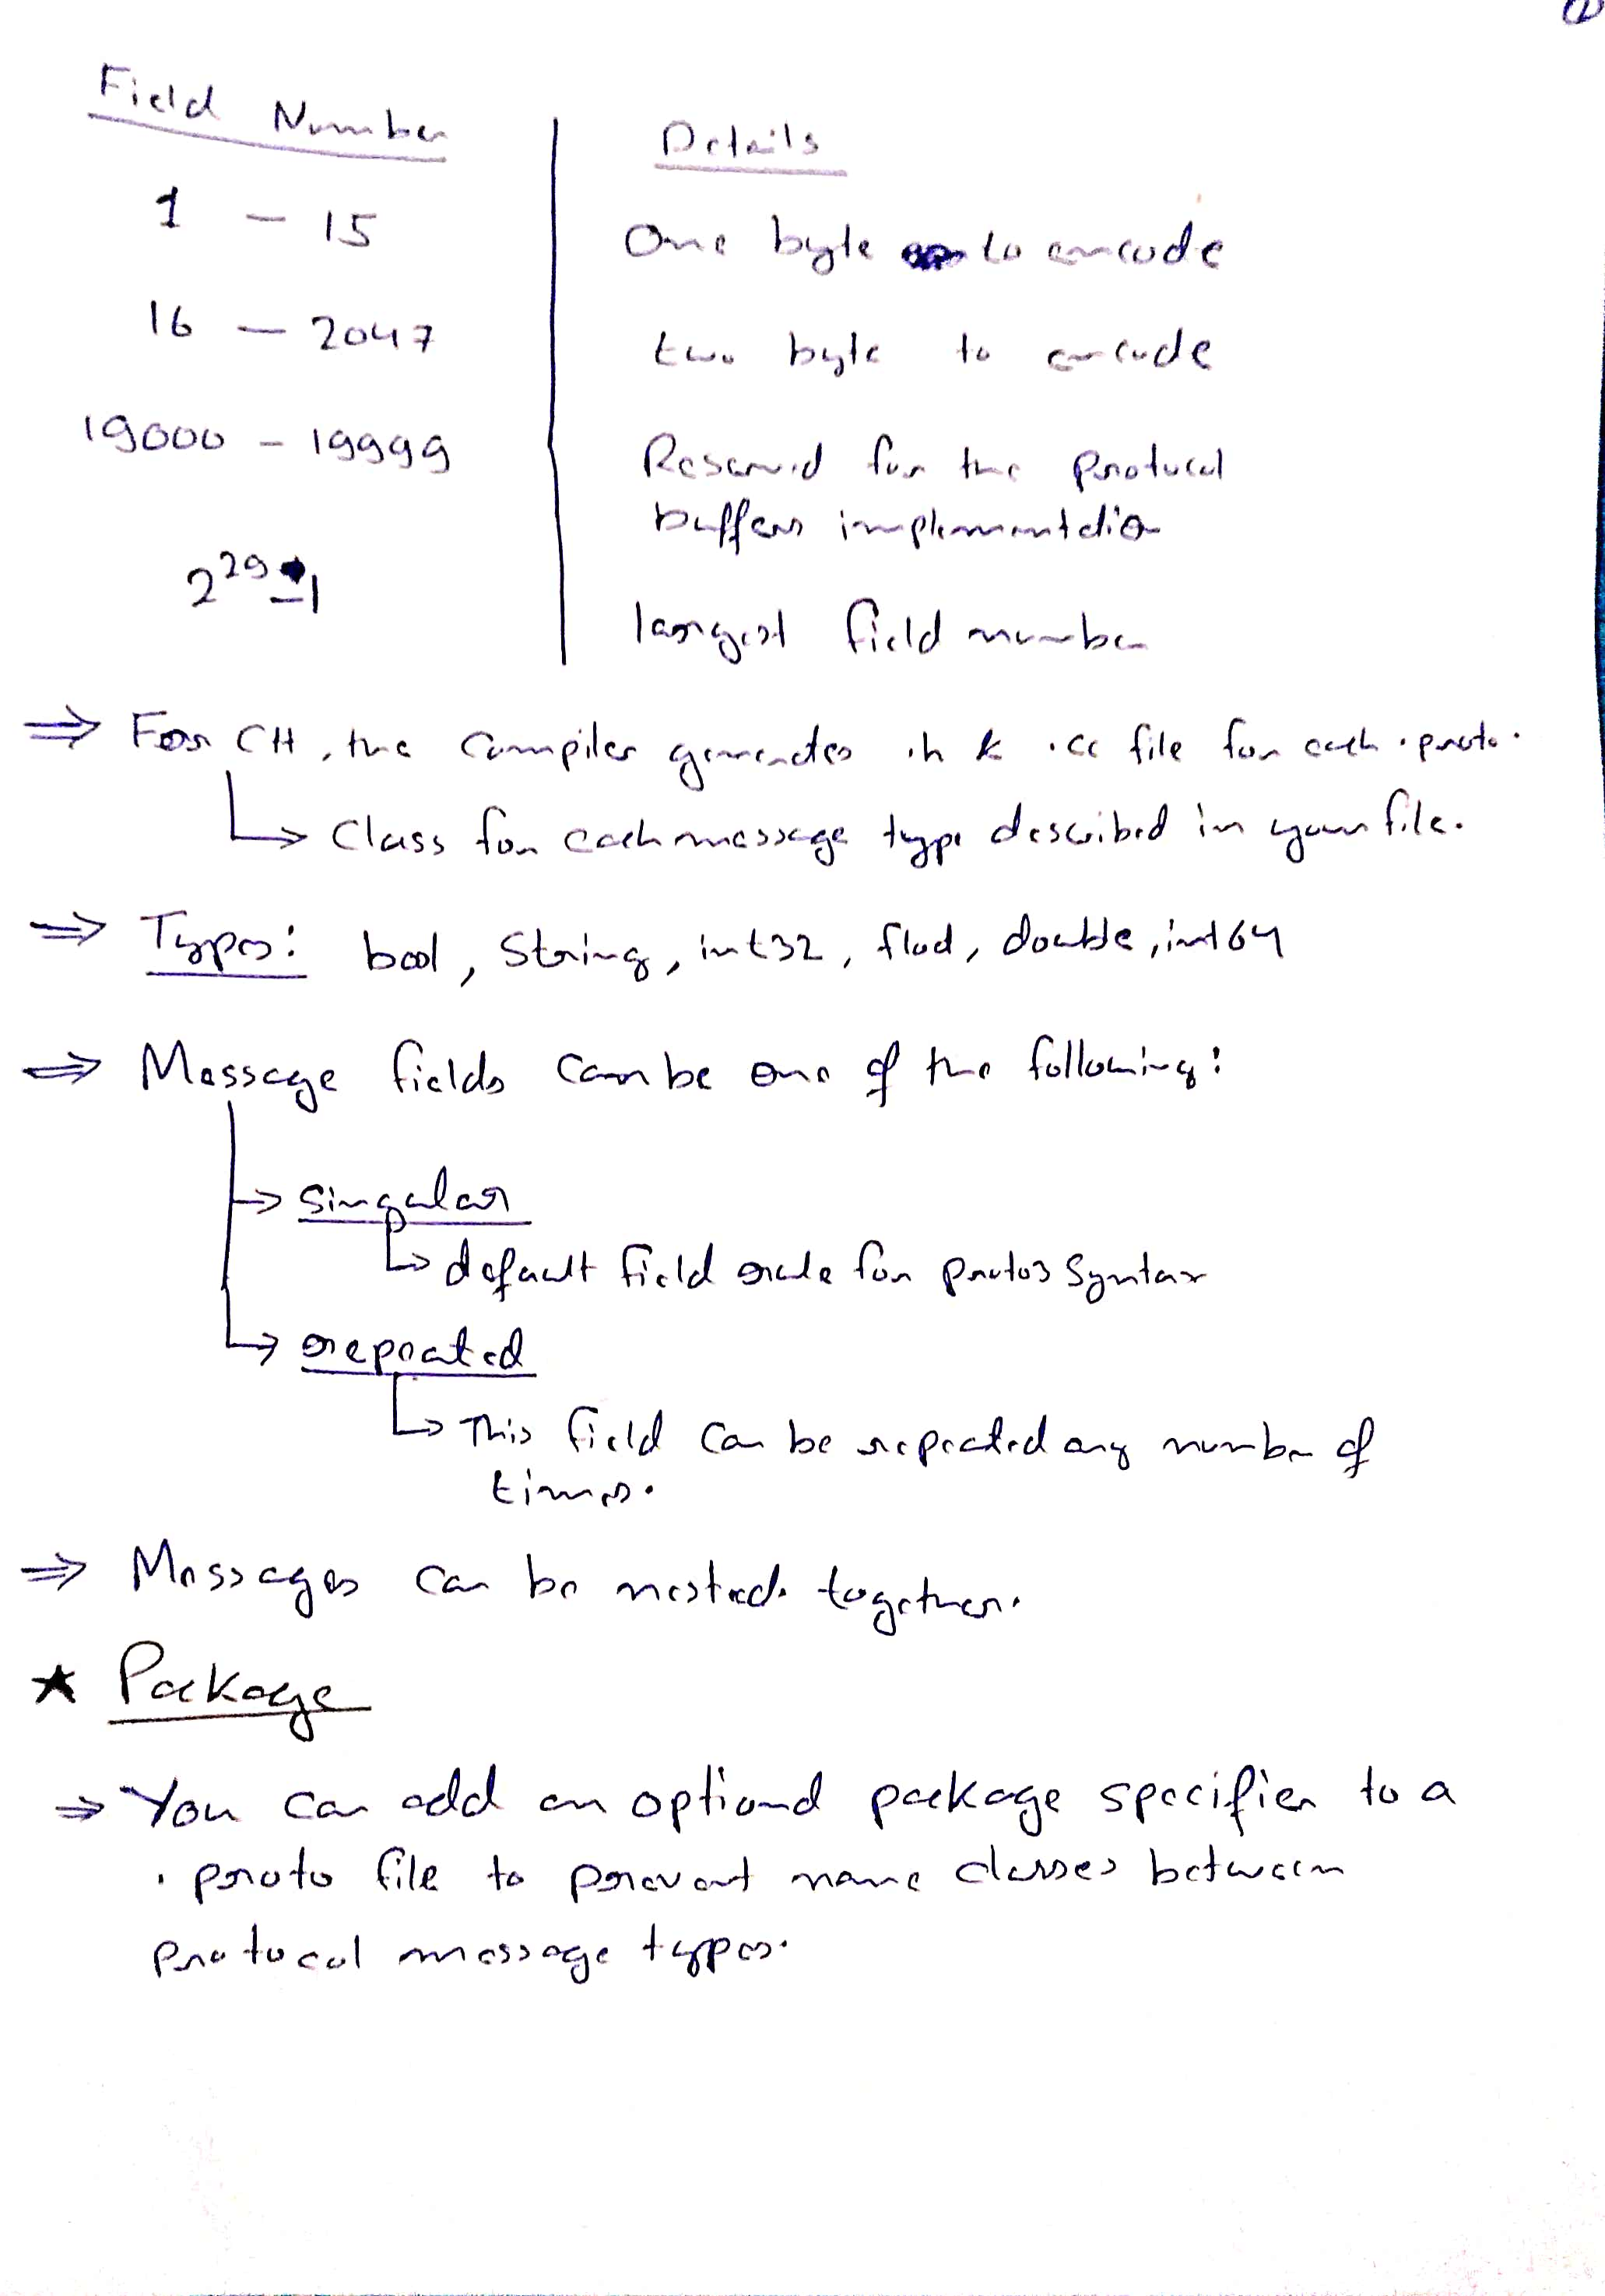 Field Number | Details
1 - 15 | One byte to encode
16 - 2047 | two byte to encode
19000 - 19999 | Reserved for the Protocol
buffers implementation
2^29 - 1 | largest field number
⇒ For C++, the compiler generates .h & .cc file for each .proto.
↳ Class for each message type described in your file.
⇒ Types: bool, String, int32, float, double, int64
⇒ Message fields can be one of the following:
→ singular
↳ default field rule for proto3 syntax
→ repeated
↳ This field can be repeated any number of
times.
⇒ Messages can be nested together.
★ Package
⇒ You can add an optional package specifier to a
.proto file to prevent name classes between
protocol message types.